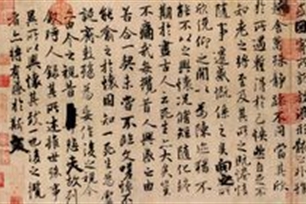 舍萬殊靜躁不同當其欣
於所遇暫得於己怏然自足不
知老之將至及其所之既惓情
隨事遷感慨係之矣向之所
欣俛仰之閒以為陳迹猶不
能不以之興懷況脩短隨化終
期於盡古人云死生亦大矣豈
不痛哉每攬昔人興感之由
若合一契未嘗不臨文嗟悼不
能喻之於懷固知一死生為虛
誕齊彭殤為妄作後之視今
由今之視昔悲夫故列
時人錄其所述雖世殊事
異所以興懷其致一也後之攬
者亦將有感於斯文